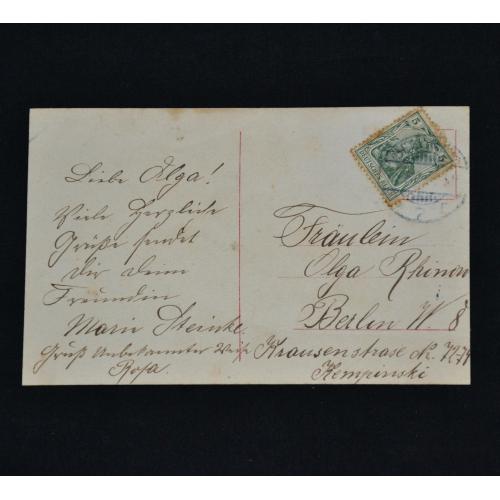 Liebe Olga!
Viele Herzliche
Grüße sendet
Dir Deine
Freundin
Marie Steinke
Gruß Unbekannter Weise
Rosa.
5 5
DEUTSCHES
Fräulein
Olga Rhinow
Berlin W. 8
Krausenstrase № 72-74
Kempinski